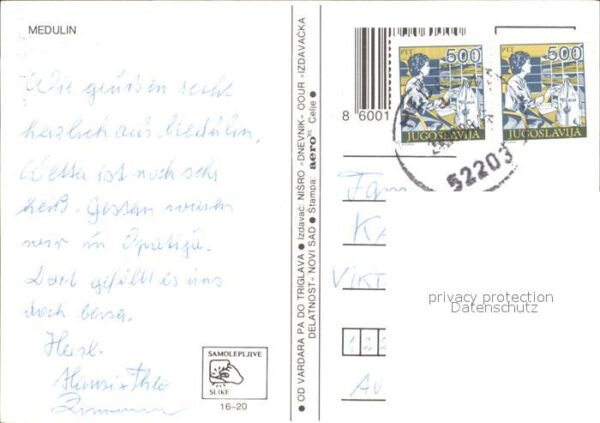 MEDULIN
Wir grüßen recht
herzlich aus Medulin,
Wetter ist noch sehr
heiß. Gestern waren
wir in Opatija.
Dort gefällt es uns
doch besser.
Herzl.
Hansi + Theo
SAMOLEPLJIVE
SLIKE
16-20
● OD VARDARA PA DO TRIGLAVA ● Izdavač: NIŠRO »DNEVNIK« OOUR »IZDAVAČKA
DELATNOST« NOVI SAD ● Štampa: aero Celje ●
8 6001
PTT 500
JUGOSLAVIJA
PTT 500
JUGOSLAVIJA
52203
Fam
KA
VIKT
122
privacy protection
Datenschutz